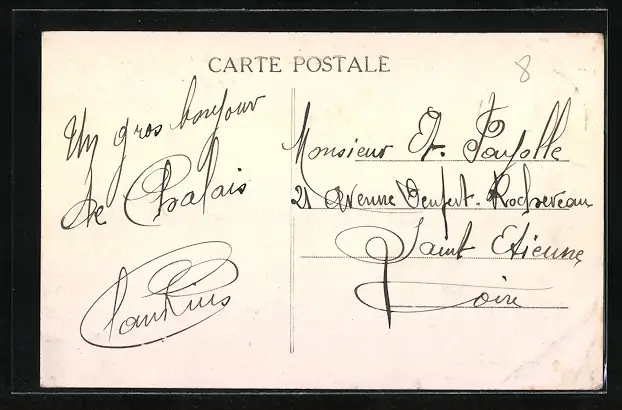 CARTE POSTALE
8
Un gros bonjour
de Chalais
Monsieur Et. Fayolle
21 Avenue Denfert-Rochereau
Saint Etienne
Loire